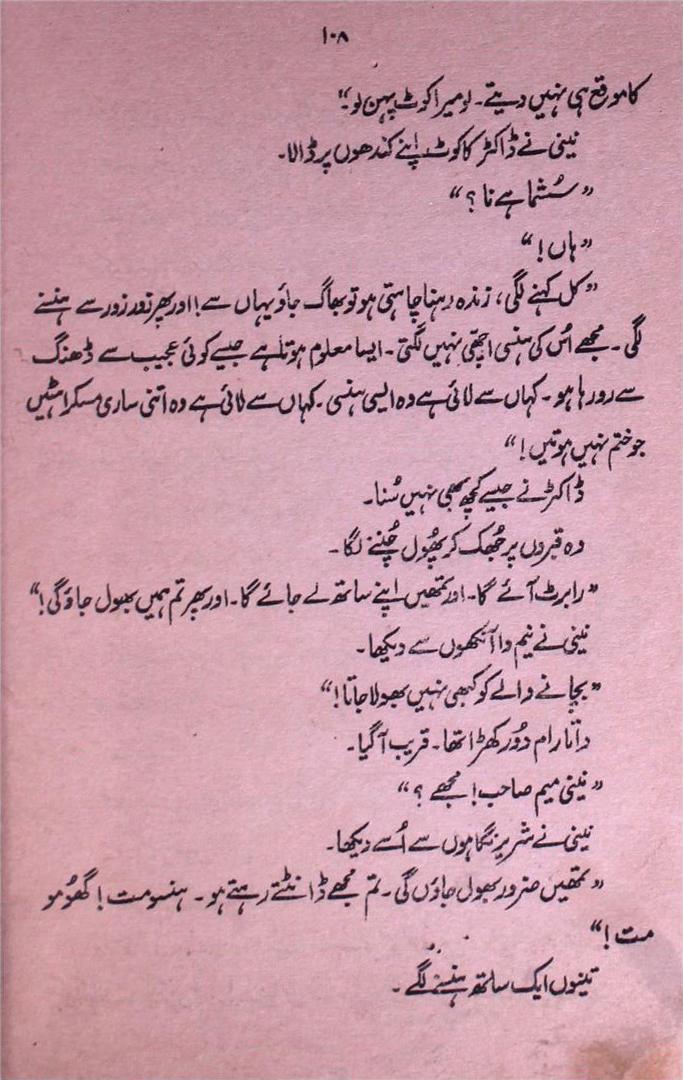 ۱۰۸
کا موقع ہی نہیں دیتے۔ لو میرا کوٹ پہن لو۔“
نینی نے ڈاکٹر کا کوٹ اپنے کندھوں پر ڈالا۔
”سُشما ہے نا؟“
”ہاں!“
”کل کہنے لگی، زندہ رہنا چاہتی ہو تو بھاگ جاؤ یہاں سے! اور پھر زور زور سے ہنسنے
لگی۔ مجھے اُس کی ہنسی اچھی نہیں لگتی۔ ایسا معلوم ہوتا ہے جیسے کوئی عجیب سے ڈھنگ
سے رو رہا ہو۔ کہاں سے لائی ہے وہ ایسی ہنسی۔ کہاں سے لائی ہے وہ اتنی ساری مسکراہٹیں
جو ختم نہیں ہوتیں!“
ڈاکٹر نے جیسے کچھ بھی نہیں سُنا۔
وہ قبروں پر جُھک کر پھُول چُننے لگا۔
”رابرٹ آئے گا۔ اور تمھیں اپنے ساتھ لے جائے گا۔ اور پھر تم ہمیں بھول جاؤ گی!“
نینی نے نیم وا آنکھوں سے دیکھا۔
”بچانے والے کو کبھی نہیں بھولا جاتا!“
داتا رام دُور کھڑا تھا۔ قریب آ گیا۔
”نینی میم صاحب! مجھے؟“
نینی نے شریر نگاہوں سے اُسے دیکھا۔
”تمھیں ضرور بھول جاؤں گی۔ تم مجھے ڈانٹتے رہتے ہو۔ ہنسو مت! گھُومو
مت!“
تینوں ایک ساتھ ہنسنے لگے۔